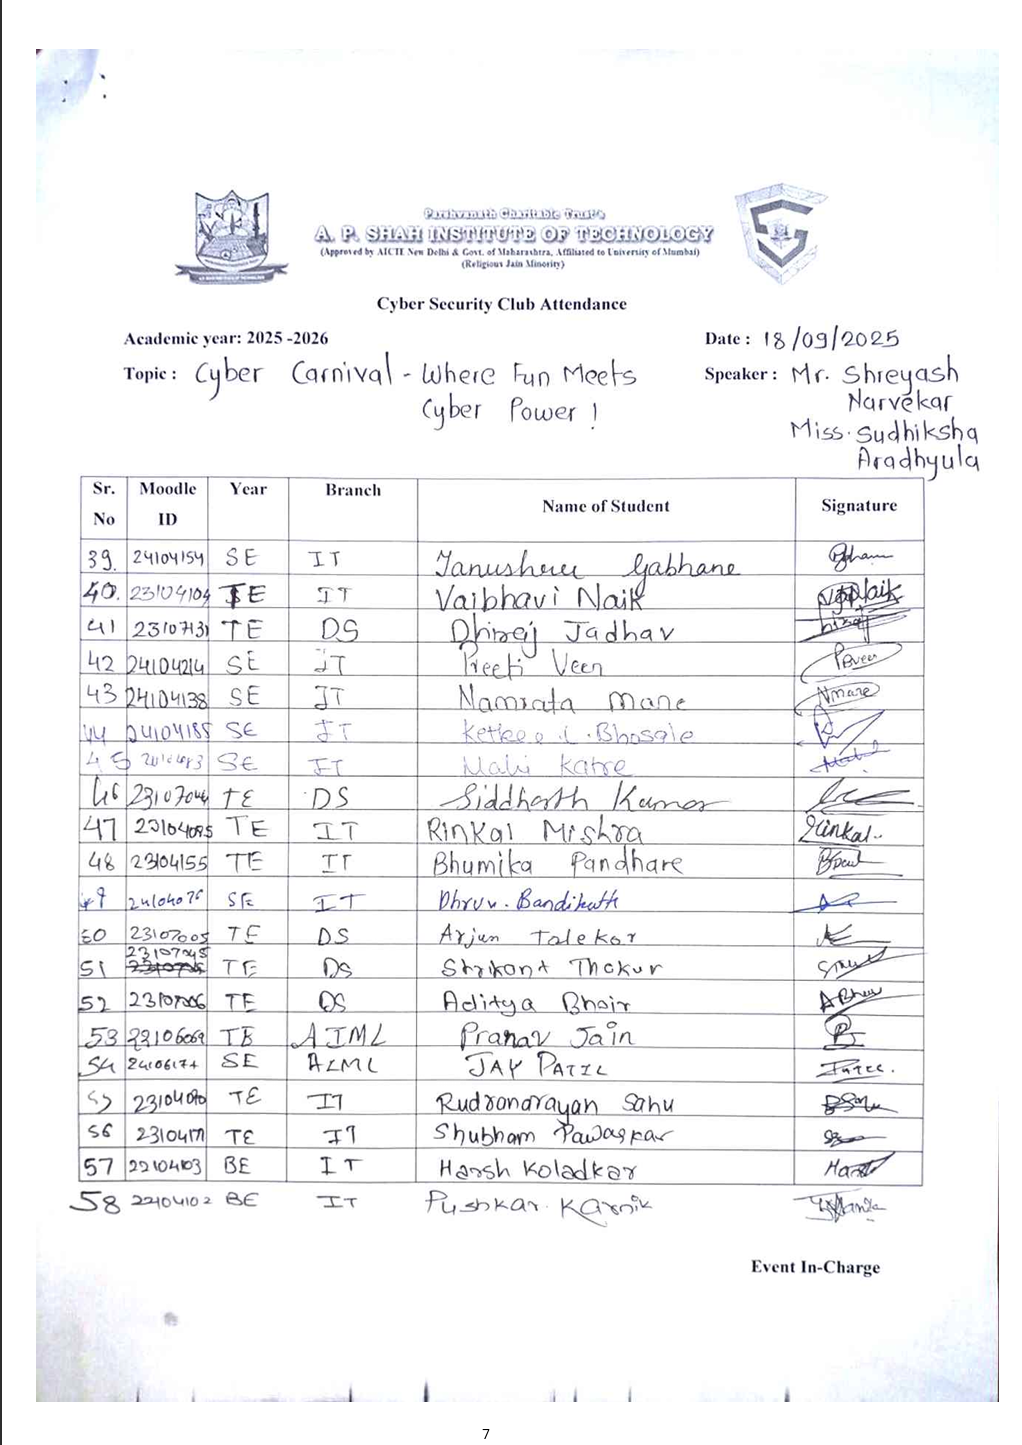 Parshvanath Charitable Trust's
A. P. SHAH INSTITUTE OF TECHNOLOGY
(Approved by AICTE New Delhi & Govt. of Maharashtra, Affiliated to University of Mumbai)
(Religious Jain Minority)
Cyber Security Club Attendance
Academic year: 2025 -2026 Date : 18/09/2025
Topic : Cyber Carnival - Where Fun Meets Cyber Power !
Speaker : Mr. Shreyash Narvekar
Miss. Sudhiksha Aradhyula
Sr. No Moodle ID Year Branch Name of Student Signature
39. 24104154 SE IT Tanushree Gabhane
40. 23104104 TE IT Vaibhavi Naik
41 23107131 TE DS Dhiraj Jadhav
42 24104214 SE IT Preeti Veer
43 24104138 SE IT Namrata Mane
44 24104185 SE IT Ketkee . Bhosale
45 SE IT Mahi Katre
46 23107044 TE DS Siddharth Kumar
47 23104095 TE IT Rinkal Mishra Rinkal.
48 23104155 TE IT Bhumika Pandhare
49 24104076 SE IT Dhruv. Bandikatti
50 23107005 TE DS Arjun Talekar
51 23107045 TE DS Shrikant Thakur
52 TE DS Aditya Bhoir
53 23106069 TE AIML Pranav Jain
54 24106174 SE AIML JAY PATIL
55 23104090 TE IT Rudranarayan Sahu
56 TE IT Shubham Pawaskar
57 22104103 BE IT Harsh Koladkar
58 22104102 BE IT Pushkar. Karnik
Event In-Charge
7